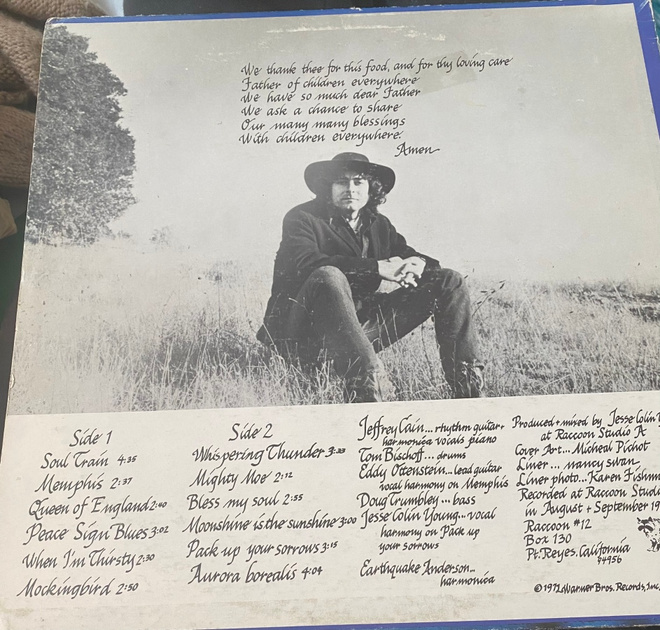 We thank thee for this food, and for thy loving care
Father of children everywhere
We have so much dear Father
We ask a chance to share
Our many many blessings
With children everywhere.
Amen
Side 1
Soul Train 4:35
Memphis 2:37
Queen of England 2:40
Peace Sign Blues 3:02
When I'm Thirsty 2:30
Mockingbird 2:50
Side 2
Whispering Thunder
Mighty Moe 2:12
Bless my soul 2:55
Moonshine is the sunshine 3:00
Pack up your sorrows 3:15
Aurora borealis 4:04
Jeffrey Cain... rhythm guitar+
harmonica vocals piano
Tom Bischoff... drums
Eddy Ottenstein... lead guitar
vocal harmony on Memphis
Doug Trumbley... bass
Jesse Colin Young... vocal
harmony on Pack up
your sorrows
Earthquake Anderson...
harmonica
Produced+mixed by Jesse Colin
at Raccoon Studio A
Cover Art... Micheal Pichot
Liner... nancy swan
Liner photo... Karen
Recorded at Raccoon
in August + September
Raccoon #12
Box 130
Pt. Reyes, California
94956
© 1972 Warner Bros. Records, Inc.